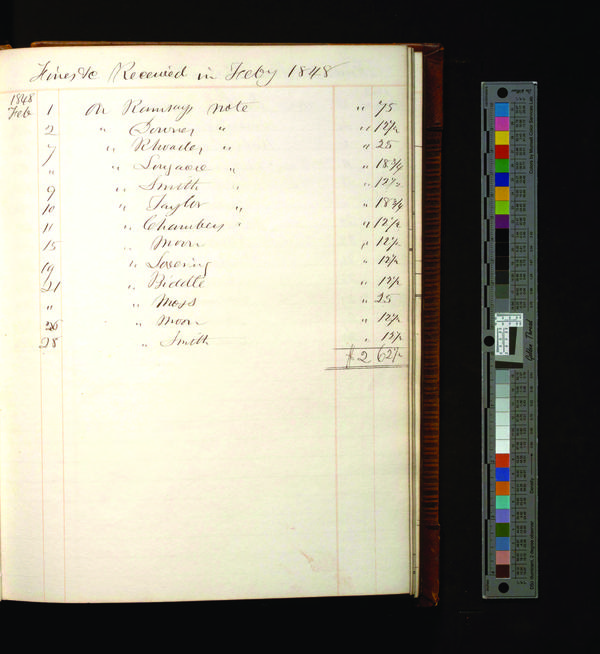 Fines &c Received in Feby 1848
1848
Feb 1 On Ramsays note " 75
2 " Conner " " 12½
7 " Rhoades " " 25
" " Longacre " " 18¾
9 " Smith " " 12½
10 " Taylor " " 18¾
11 " Chambers " " 12½
15 " Moon " 12½
19 " Lovering " 12½
21 " Biddle " 12½
" " Moss " 25
26 " Moon " 12½
28 " Smith " 12½
$ 2 62½